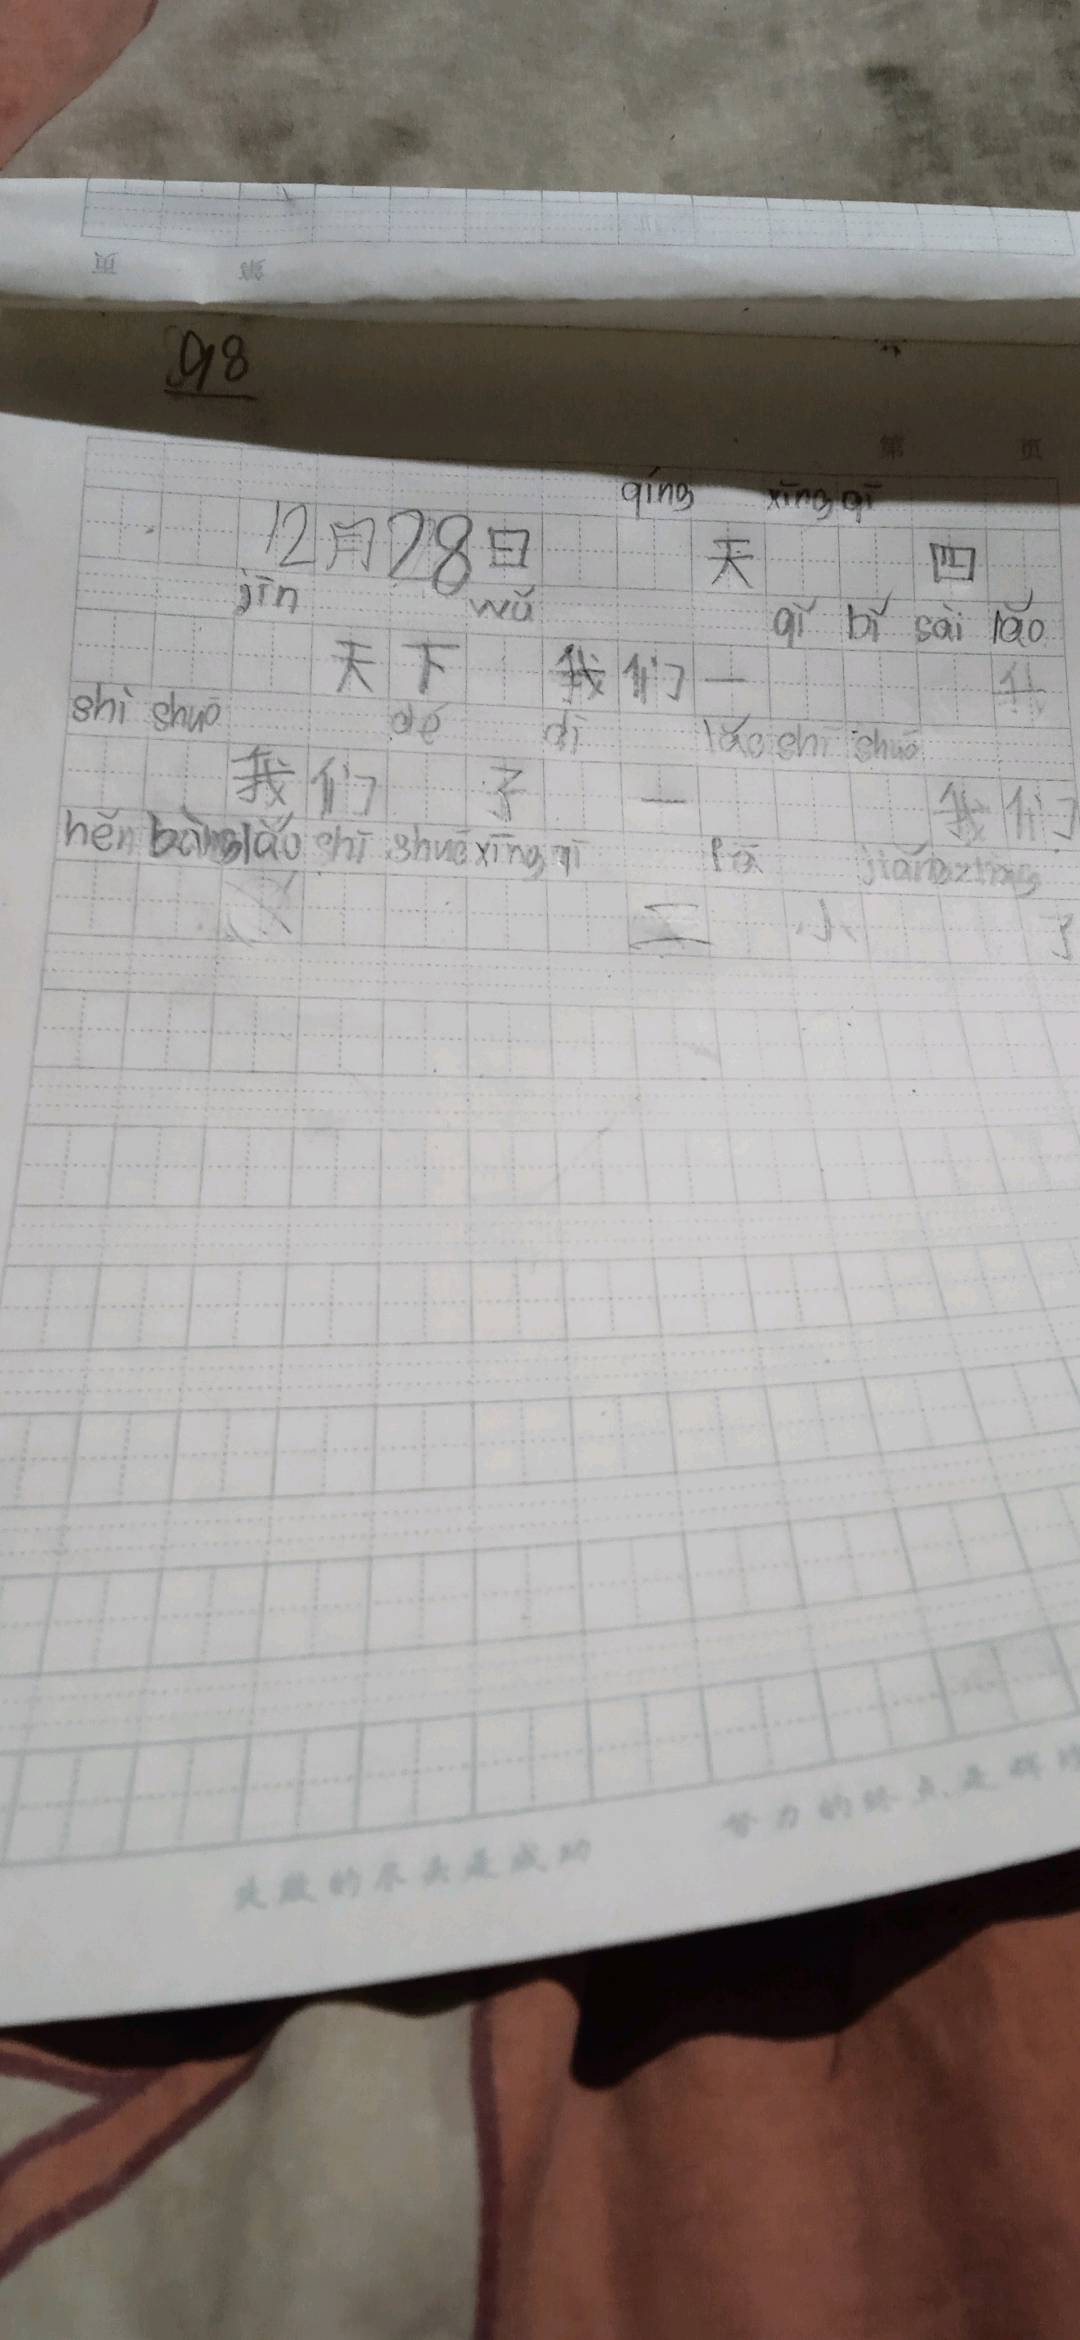 98
第 页
qíng xīng qī
12月28日 天 四
jīn wǔ qǐ bǐ sài lǎo
天下 我们一
shì shuō dé dì lǎo shī shuō
我们 了 一 我们
hěn bàng lǎo shī shuō xīng qī
二 小 了
失败的尽头是成功 努力的终点是辉